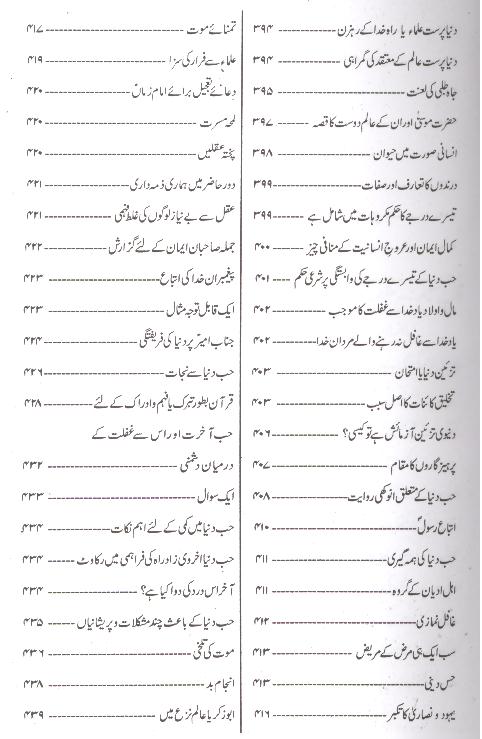 دنیا پرست علماء یا راہ خدا کے رہزن ---------- ۳۹۴
دنیا پرست عالم کے معتقد کی گمراہی ---------- ۳۹۴
جاہ طلبی کی لعنت ---------- ۳۹۵
حضرت موسیٰؑ اور ان کے عالم دوست کا قصہ ---------- ۳۹۷
انسانی صورت میں حیوان ---------- ۳۹۸
درندوں کا تعارف اور صفات ---------- ۳۹۹
تیسرے درجے کا حکم مکروہات میں شامل ہے ---------- ۳۹۹
کمال ایمان اور عروج انسانیت کے منافی چیز ---------- ۴۰۰
حب دنیا کے تیسرے درجے کی وابستگی پر شرعی حکم ---------- ۴۰۱
مال و اولاد یاد خدا سے غفلت کا موجب ---------- ۴۰۲
یاد خدا سے غافل نہ رہنے والے مردان خدا ---------- ۴۰۲
تزئین دنیا یا امتحان ---------- ۴۰۳
تخلیق کائنات کا اصل سبب ---------- ۴۰۳
دنیوی تزئین آزمائش ہے تو کیسی؟ ---------- ۴۰۶
پرہیزگاروں کا مقام ---------- ۴۰۷
حب دنیا کے متعلق انوکھی روایت ---------- ۴۰۸
اتباع رسولؐ ---------- ۴۱۰
حب دنیا کی ہمہ گیری ---------- ۴۱۱
اہل ادیان کے گروہ ---------- ۴۱۱
غافل نمازی ---------- ۴۱۲
سب ایک ہی مرض کے مریض ---------- ۴۱۳
حس دینی ---------- ۴۱۳
یہود و نصاریٰ کا تکبر ---------- ۴۱۶
تمنائے موت ---------- ۴۱۷
علماء سے فرار کی سزا ---------- ۴۱۹
دعائے تعجیل برائے امام زمانؑ ---------- ۴۲۰
لمحہ مسرت ---------- ۴۲۰
پختہ عقلیں ---------- ۴۲۰
دور حاضر میں ہماری ذمہ داری ---------- ۴۲۱
عقل سے بے نیاز لوگوں کی غلط فہمی ---------- ۴۲۱
جملہ صاحبان ایمان کے لئے گزارش ---------- ۴۲۲
پیغمبران خدا کی اتباع ---------- ۴۲۳
ایک قابل توجہ مثال ---------- ۴۲۳
جناب امیرؑ پر دنیا کی فریفتگی ---------- ۴۲۴
حب دنیا سے نجات ---------- ۴۲۶
قرآن بطور تبرک یا فہم و ادراک کے لئے ---------- ۴۲۸
حب آخرت اور اس سے غفلت کے
درمیان دشمنی ---------- ۴۳۲
ایک سوال ---------- ۴۳۳
حب دنیا میں کمی کے لئے اہم نکات ---------- ۴۳۴
حب دنیا اخروی زاد راہ کی فراہمی میں رکاوٹ ---------- ۴۳۴
آخر اس درد کی دوا کیا ہے؟ ---------- ۴۳۴
حب دنیا کے باعث چند مشکلات و پریشانیاں ---------- ۴۳۵
موت کی تلخی ---------- ۴۳۶
انجام بد ---------- ۴۳۸
ابوزکریا عالم نزع میں ---------- ۴۳۹